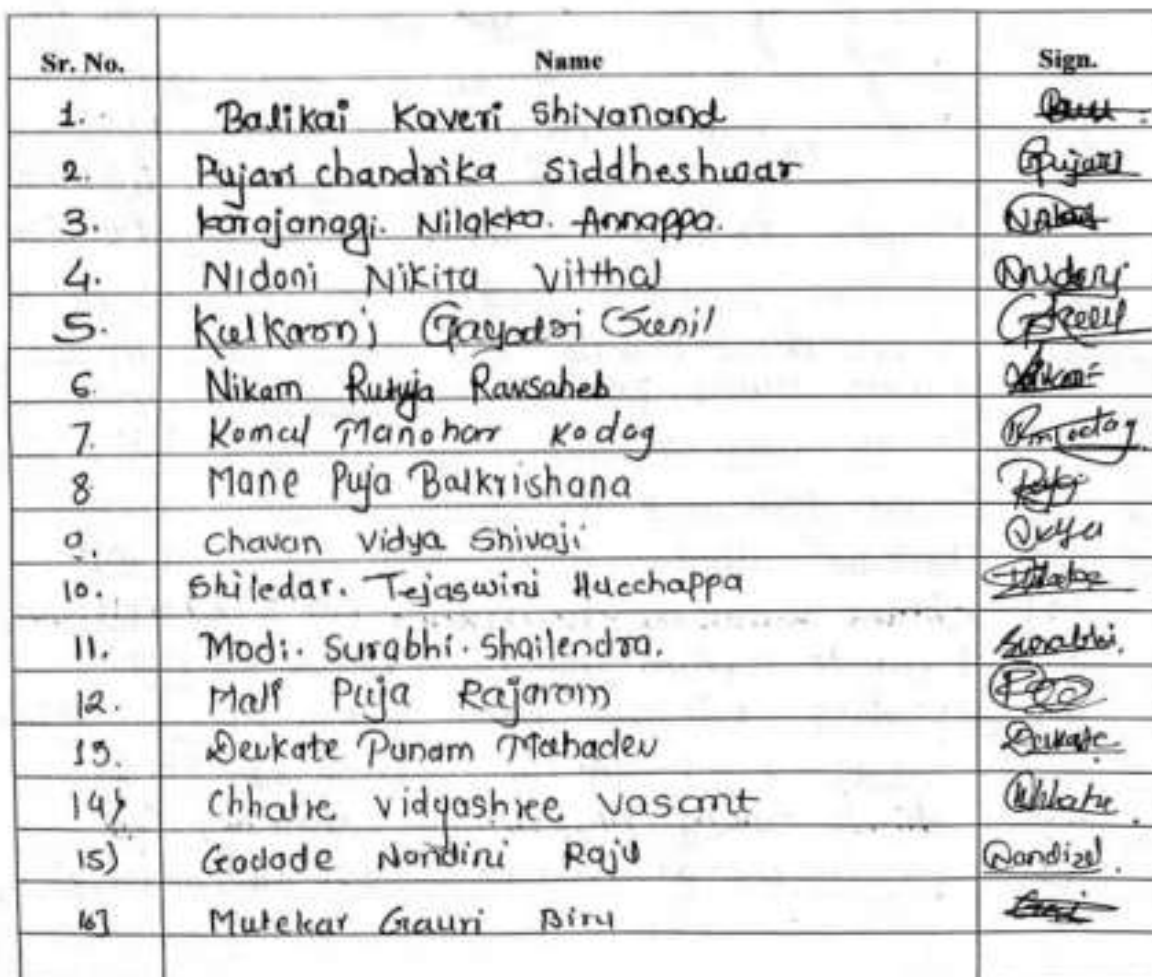 Sr. No. Name Sign.
1. Balikai Kaveri Shivanand
2. Pujari chandrika Siddheshwar Pujari
3. karajanagi. Nilakka. Annappa.
4. NIdoni Nikita Vitthal Nidoni
5. Kulkarni Gayatri Sunil
6. Nikam Rutuja Ravsaheb
7. Komal Manohar Kodag
8 Mane Puja Balkrishana
9. Chavan Vidya Shivaji
10. Shiledar. Tejaswini Hucchappa
11. Modi. Surabhi. Shailendra. Surabhi.
12. Mali Puja Rajaram
13. Devkate Punam Mahadev Devkate
14) Chhatre Vidyashree Vasant Chhatre
15) Godade Nandini Raju Nandini
16] Mutekar Gauri Biru